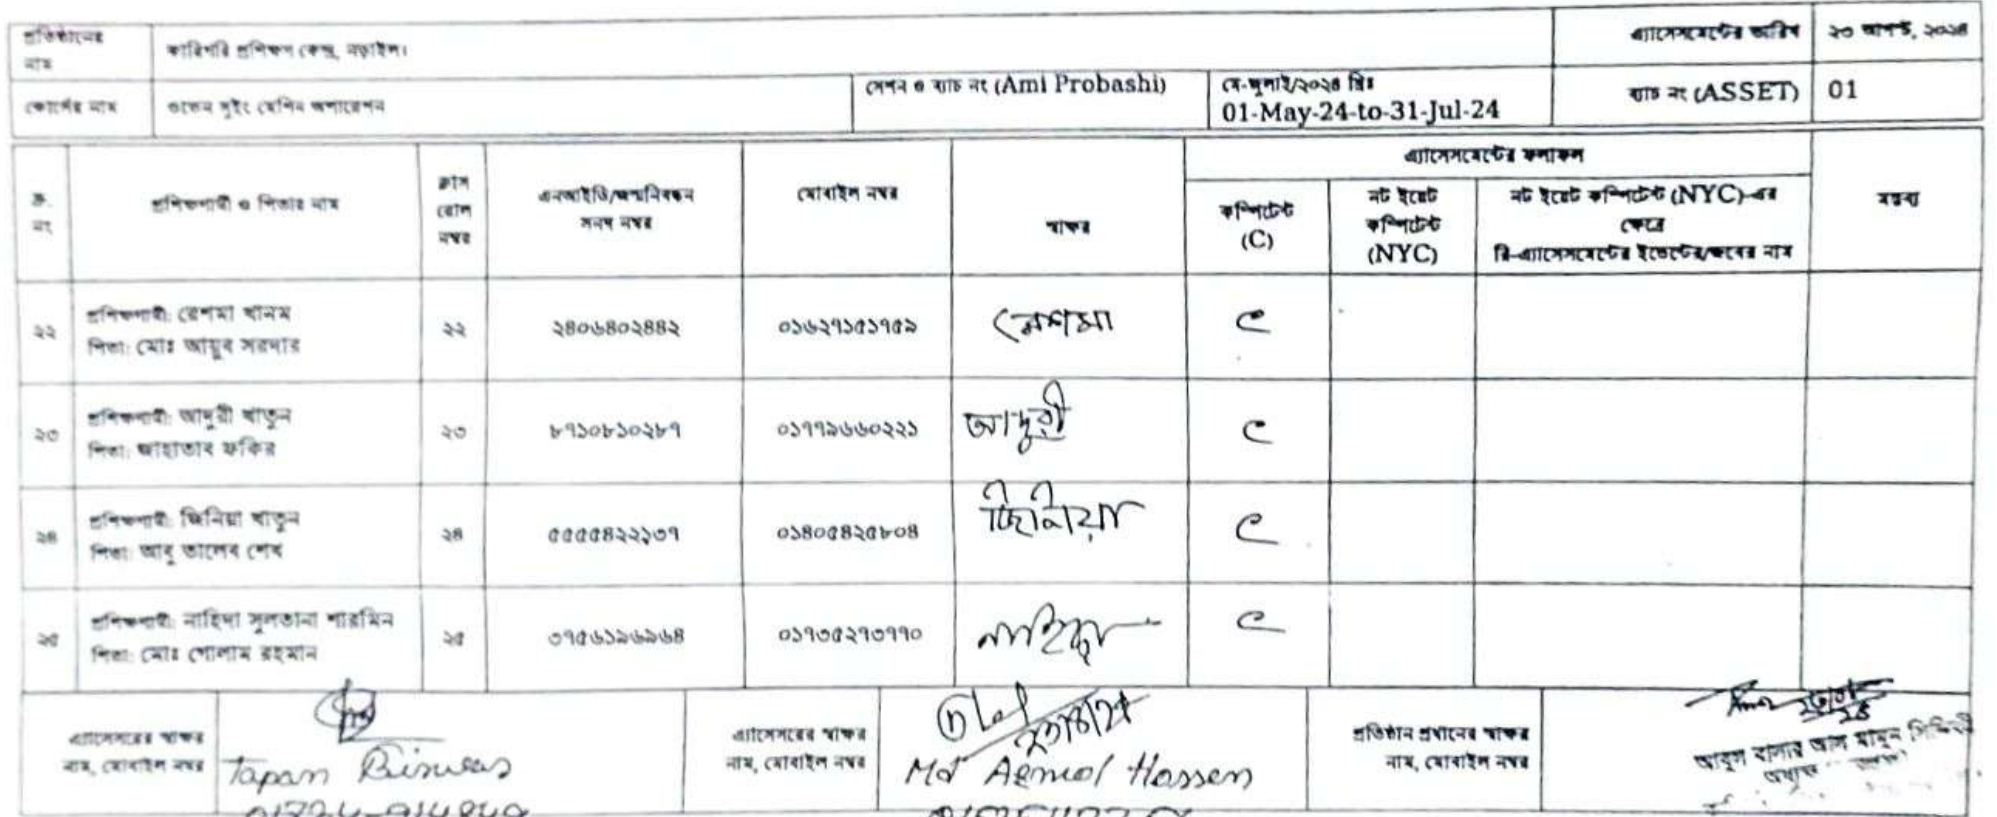 প্রতিষ্ঠানের
নাম
কারিগরি প্রশিক্ষণ কেন্দ্র, নড়াইল।
এ্যাসেসমেন্টের তারিখ
২৩ আগস্ট, ২০২৪
কোর্সের নাম
ওভেন সুইং মেশিন অপারেশন
সেশন ও ব্যাচ নং (Ami Probashi)
মে-জুলাই/২০২৪ খ্রিঃ
01-May-24-to-31-Jul-24
ব্যাচ নং (ASSET)
01
ক্র.
নং
প্রশিক্ষণার্থী ও পিতার নাম
ক্লাস
রোল
নম্বর
এনআইডি/জন্মনিবন্ধন
সনদ নম্বর
মোবাইল নম্বর
স্বাক্ষর
এ্যাসেসমেন্টের ফলাফল
কম্পিটেন্ট
(C)
নট ইয়েট
কম্পিটেন্ট
(NYC)
নট ইয়েট কম্পিটেন্ট (NYC)-এর
ক্ষেত্রে
রি-এ্যাসেসমেন্টের ইভেন্টের/জবের নাম
মন্তব্য
২২
প্রশিক্ষণার্থী: রেশমা খানম
পিতা: মোঃ আয়ুব সরদার
২২
২৪০৬৪০২৪৪২
০১৬২৭১৫১৭৫৯
রেশমা
C
২৩
প্রশিক্ষণার্থী: আদুরী খাতুন
পিতা: আহাতাব ফকির
২৩
৮৭১০৮১০২৮৭
০১৭৭৯৬৬০২২১
আদুরী
C
২৪
প্রশিক্ষণার্থী: জিনিয়া খাতুন
পিতা: আবু তালেব শেখ
২৪
৫৫৫৫৪২২১৩৭
০১৪০৫৪২৫৮০৪
জিনীয়া
C
২৫
প্রশিক্ষণার্থী: নাহিদা সুলতানা শারমিন
পিতা: মোঃ গোলাম রহমান
২৫
৩৭৫৬১৯৬৯৬৪
০১৭৩৫২৭৩৭৭০
C
এ্যাসেসরের স্বাক্ষর
নাম, মোবাইল নম্বর
Tapan Biswas
এ্যাসেসরের স্বাক্ষর
নাম, মোবাইল নম্বর
Md Hassen
প্রতিষ্ঠান প্রধানের স্বাক্ষর
নাম, মোবাইল নম্বর
অধ্যক্ষ